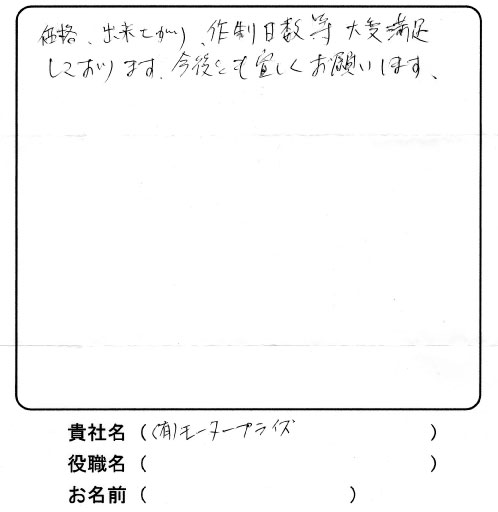 価格、出来上がり、作制日数等 大変満足
しております。今後とも宜しくお願いします、
貴社名（(有)モータープライズ　　　）
役職名（　　　　　　　　）
お名前（　　　　　　　　）